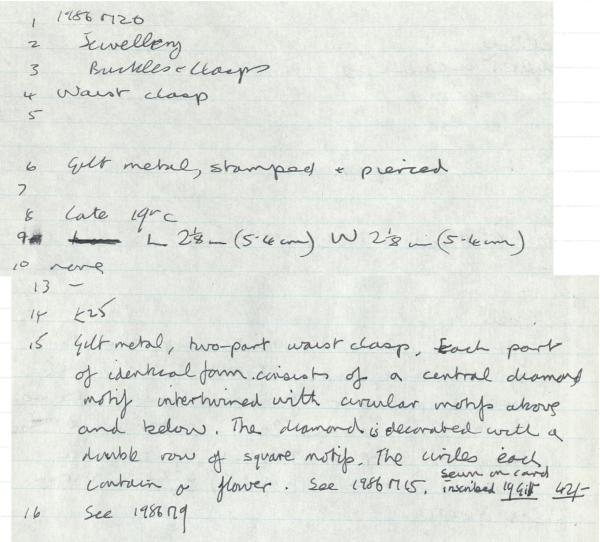 1 1986 M20
2 Jewellery
3 Buckles + Clasps
4 Waist clasp
5
6 Gilt metal, stamped + pierced
7
8 Late 19th C
9 L 2 1/8 in (5.4 cm) W 2 1/8 in (5.4 cm)
10 none
13 –
14 £25
15 Gilt metal, two-part waist clasp, Each part
of identical form consists of a central diamond
motif intertwined with circular motifs above
and below. The diamond is decorated with a
double row of square motifs. The circles each
contain a flower. See 1986 M15. sewn on card
inscribed 19 Gilt 42/-
16 See 1986 M9